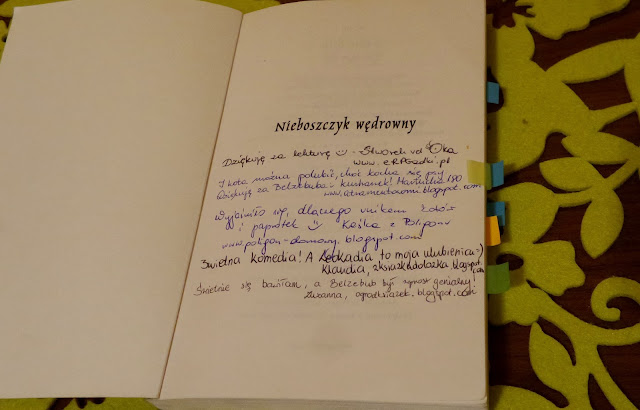 Nieboszczyk wędrowny
Dziękuję za lekturę - Stworek vel Oka
www.eRPGedki.pl
I kota można polubić, choć kocha się psy
Dziękuję za Belzebuba i kuchanek!
www.atramentowomi.blogspot.com
Wyjaśniło się, dlaczego unikam kotów
i paprotek Kaśka z Poligonu
www.poligon-domowy.blogspot.com
Świetna komedia! A Leokadia to moja ulubienica :)
Klaudia, zksiazkadolozka.blogspot.com
Świetnie się bawiłam, a Belzebub był wprost genialny!
Zuzanna, ogrodksiazek.blogspot.com